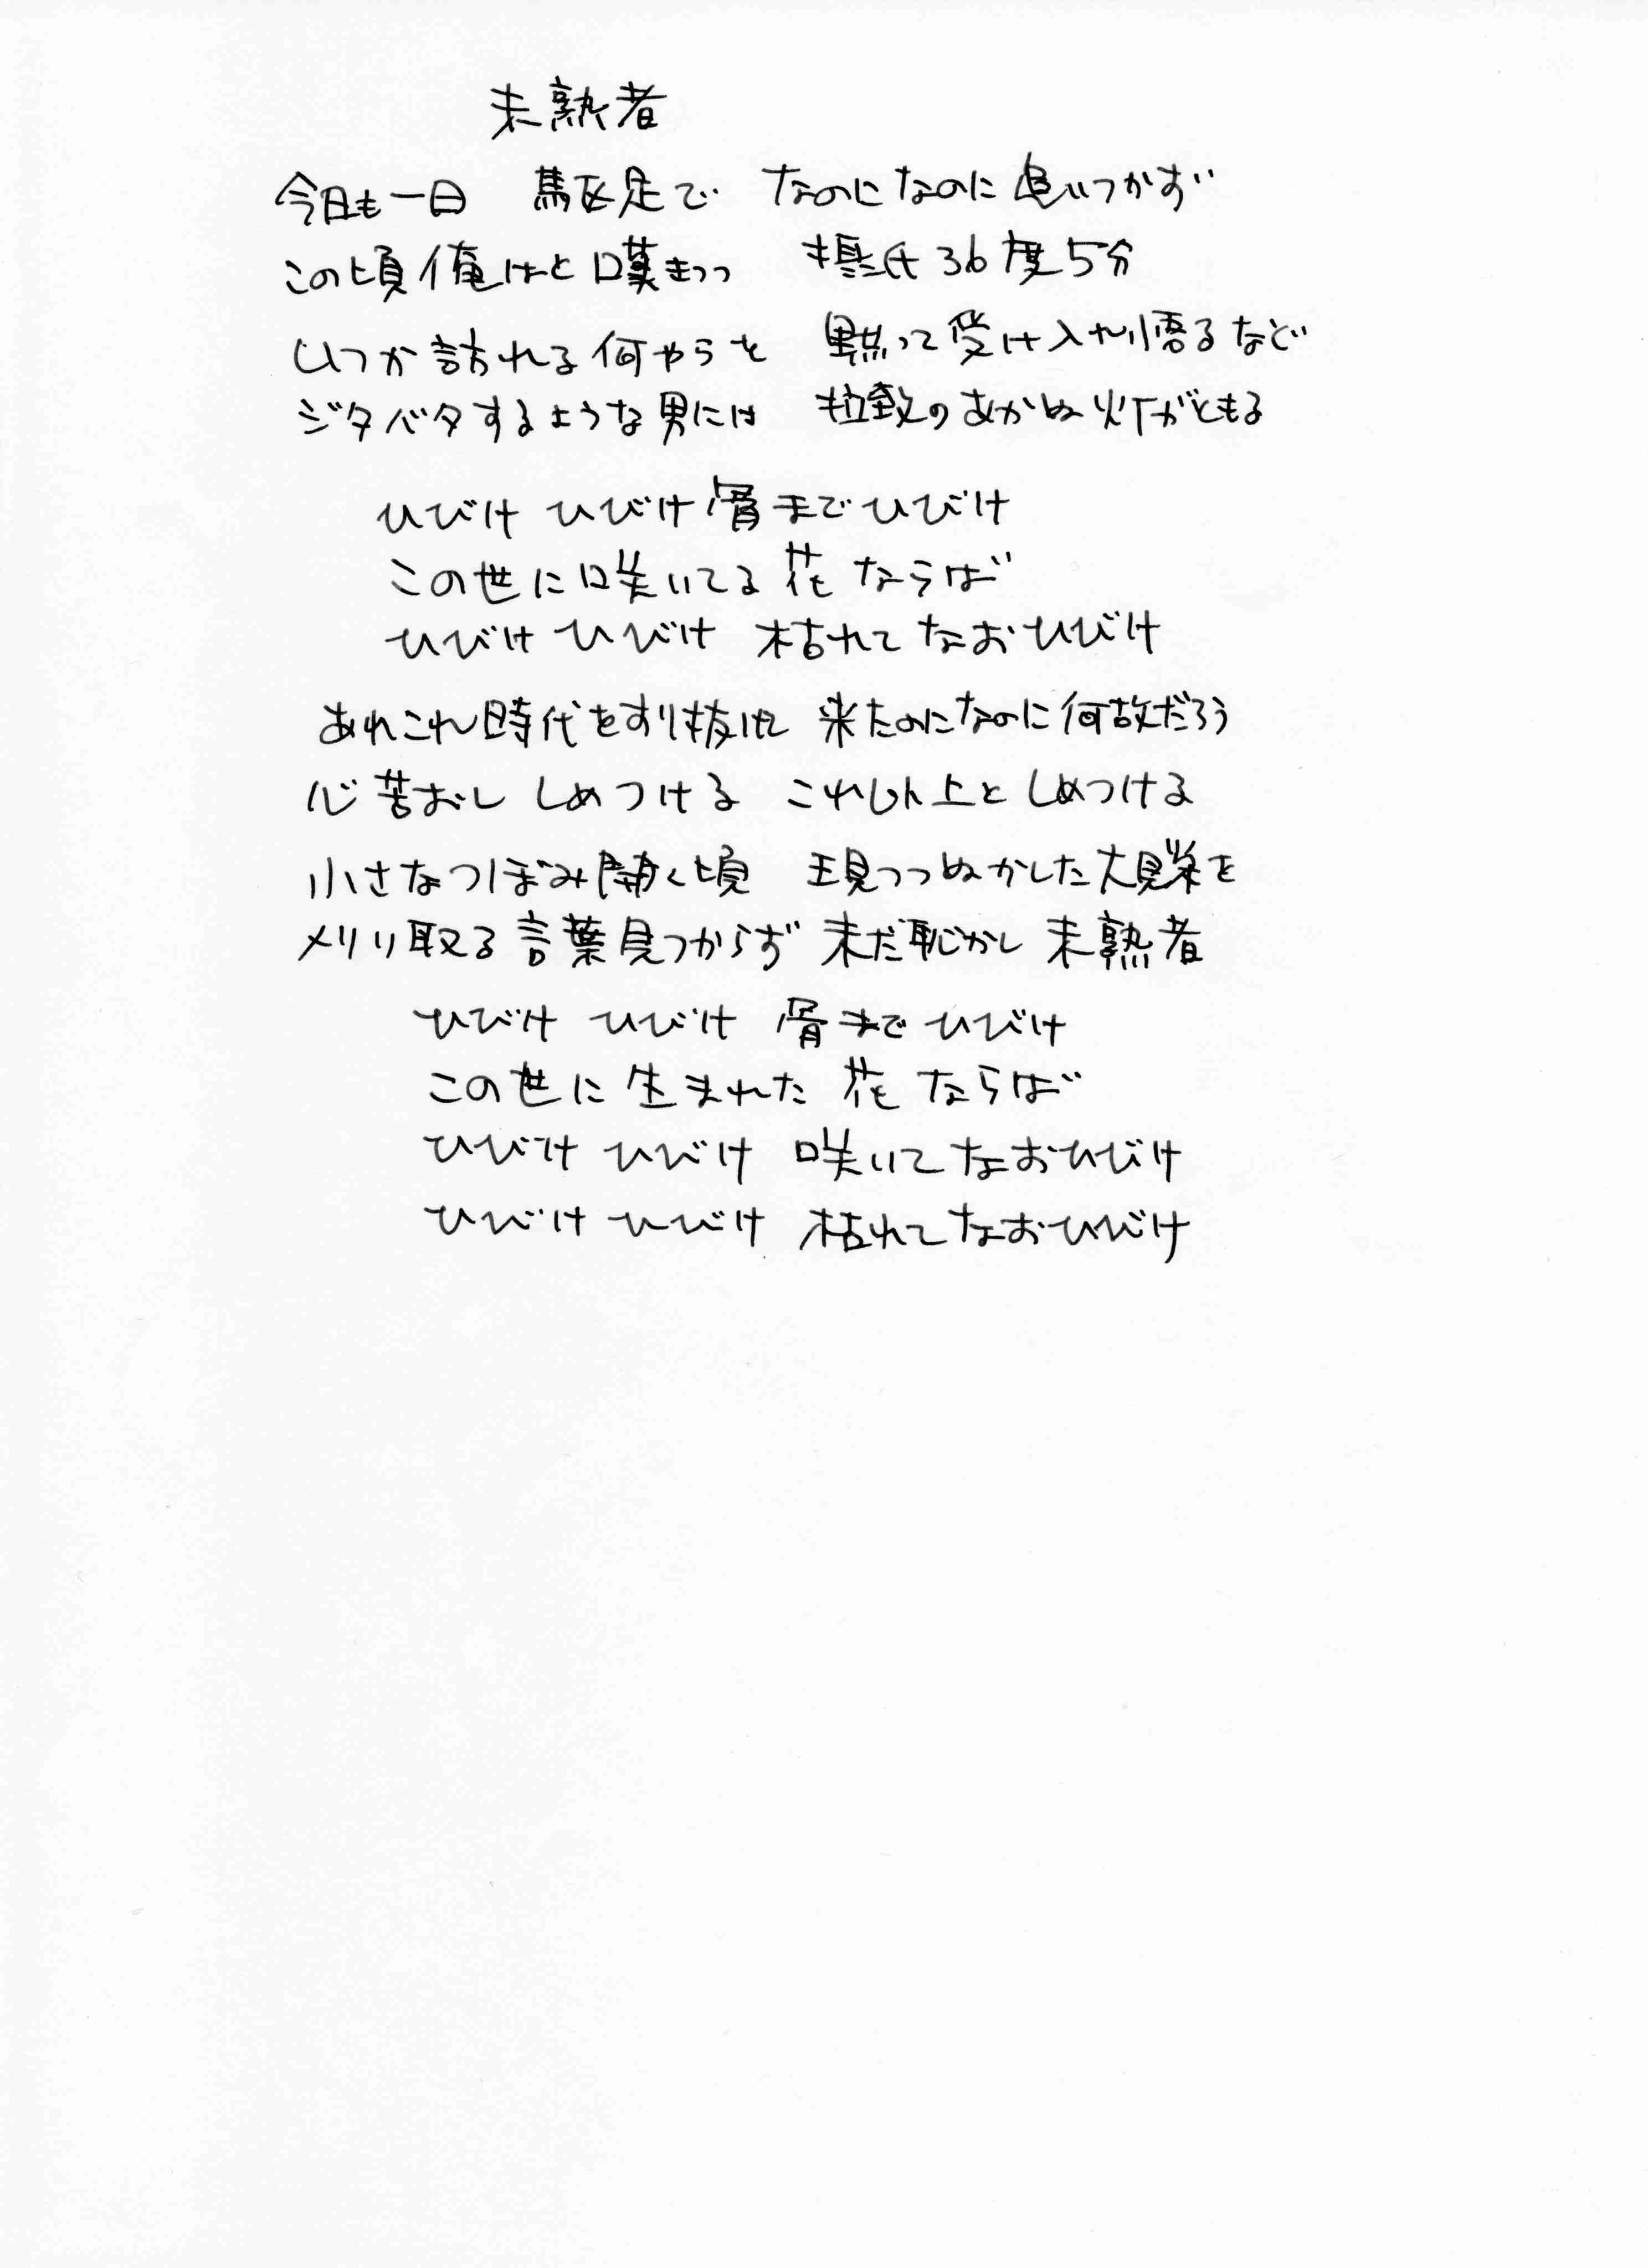 未熟者
今日も一日　駆足で　なのになのに追いつかず
この頃俺はと嘆きつつ　摂氏36度5分
いつか訪れる何やらを　黙って受け入れ悟るなど
ジタバタするような男には　拉致のあかぬ灯がともる
ひびけ ひびけ 骨までひびけ
この世に咲いてる 花 ならば
ひびけ ひびけ 枯れて なおひびけ
あれこれ時代をすり抜け 来たのになのに何故だろう
心苦おし しめつける これ以上と しめつける
小さなつぼみ開く頃　現つつぬかした大見栄を
刈り取る言葉見つからず 未だ恥かし 未熟者
ひびけ ひびけ 骨まで ひびけ
この世に 生まれた 花 ならば
ひびけ ひびけ 咲いて なおひびけ
ひびけ ひびけ 枯れて なおひびけ